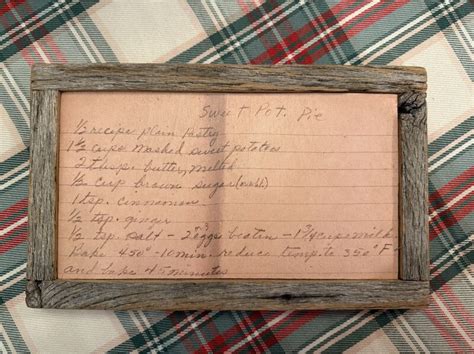 Sweet Pot. Pie
1/2 recipe plain pastry
1 1/2 cups mashed sweet potatoes
2 tbsps. butter, melted
1/2 cup brown sugar
1 tsp. cinnamon
1/2 tsp. ginger
1/2 tsp. salt - 2 eggs beaten - 1 3/4 cups milk
Bake 450° - 10 min. reduce temp. to 350° F
and bake 45 minutes